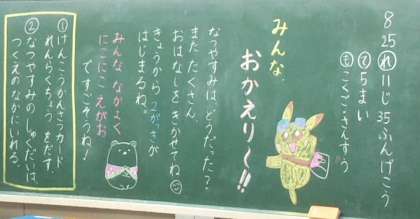 8/25
れ 11じ35ふんげこう
て てちょう
も こくご・さんすう
みんな、
おかえり〜!!
なつやすみは、どうだった?
また たくさん
おはなしを きかせてね
きょうから 2がっきが
はじまるね。
みんな なかよく
にこにこ えがお
で すごそうね!
① けんこうかんさつカード
れんらくちょう をだす。
② なつやすみの しゅくだいは
つくえのなかにいれる。